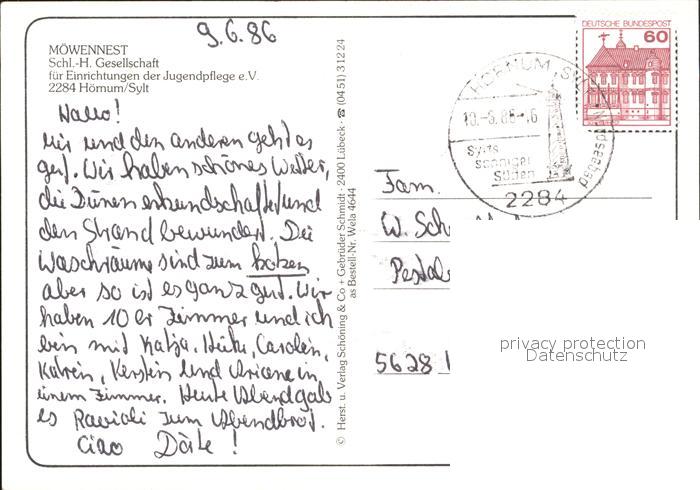 9.6.86
MÖWENNEST
Schl.-H. Gesellschaft
für Einrichtungen der Jugendpflege e.V.
2284 Hörnum/Sylt
Hallo!
Mir und den anderen geht es
gut. Wir haben schönes Wetter,
die Dünen erkundschaftet und
den Strand bewundert. Die
Waschräume sind zum kotzen
aber so ist es ganz gut. Wir
haben 10er Zimmer und ich
bin mit Katja, Heike, Carolin,
Katrin, Kerstin und Ariane in
einem Zimmer. Heute Abend gab
es Ravioli zum Abendbrot.
Ciao Dörte!
© Herst. u. Verlag Schöning & Co + Gebrüder Schmidt · 2400 Lübeck · ☎ (04 51) 3 12 24
as Bestell-Nr. Wela 4644
DEUTSCHE BUNDESPOST
60
HÖRNUM, SYLT
10.-6.86-16
Sylts
sonniger
Süden
2284
Nordseebad
Fam.
W. Sch
Pestal
5628
privacy protection
Datenschutz